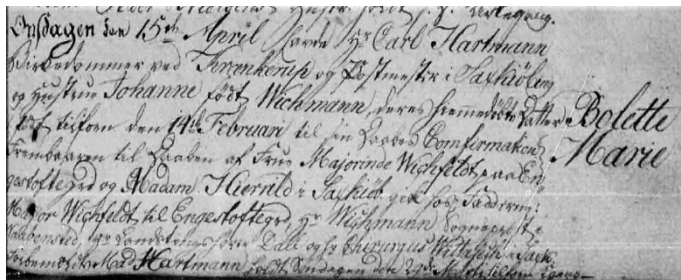 Onsdagen den 15de April havde Hr Carl Hartmann
Birkedommer ved Krænkerup og Postmester i Saxkiöbing
og Hustrue Johanne födt Wichmann, deres hiemmedöbte Datter Bolette
födt tilforn den 14de Februari til sin Daabes Comfirmation Marie
Frembaaren til Daaben af Frue Majorinde Wichfeldt paa En-
gestoftegrd og Madam Hiernild i Saxkiöb. gik hos Fadderne:
Major Wichfeldt til Engestoftegrd, Hr Wichmann Sognepræst i
Vaabensted, Dall og Chirurgus i Saxk.
Mad Hartmann holdt Söndagen den